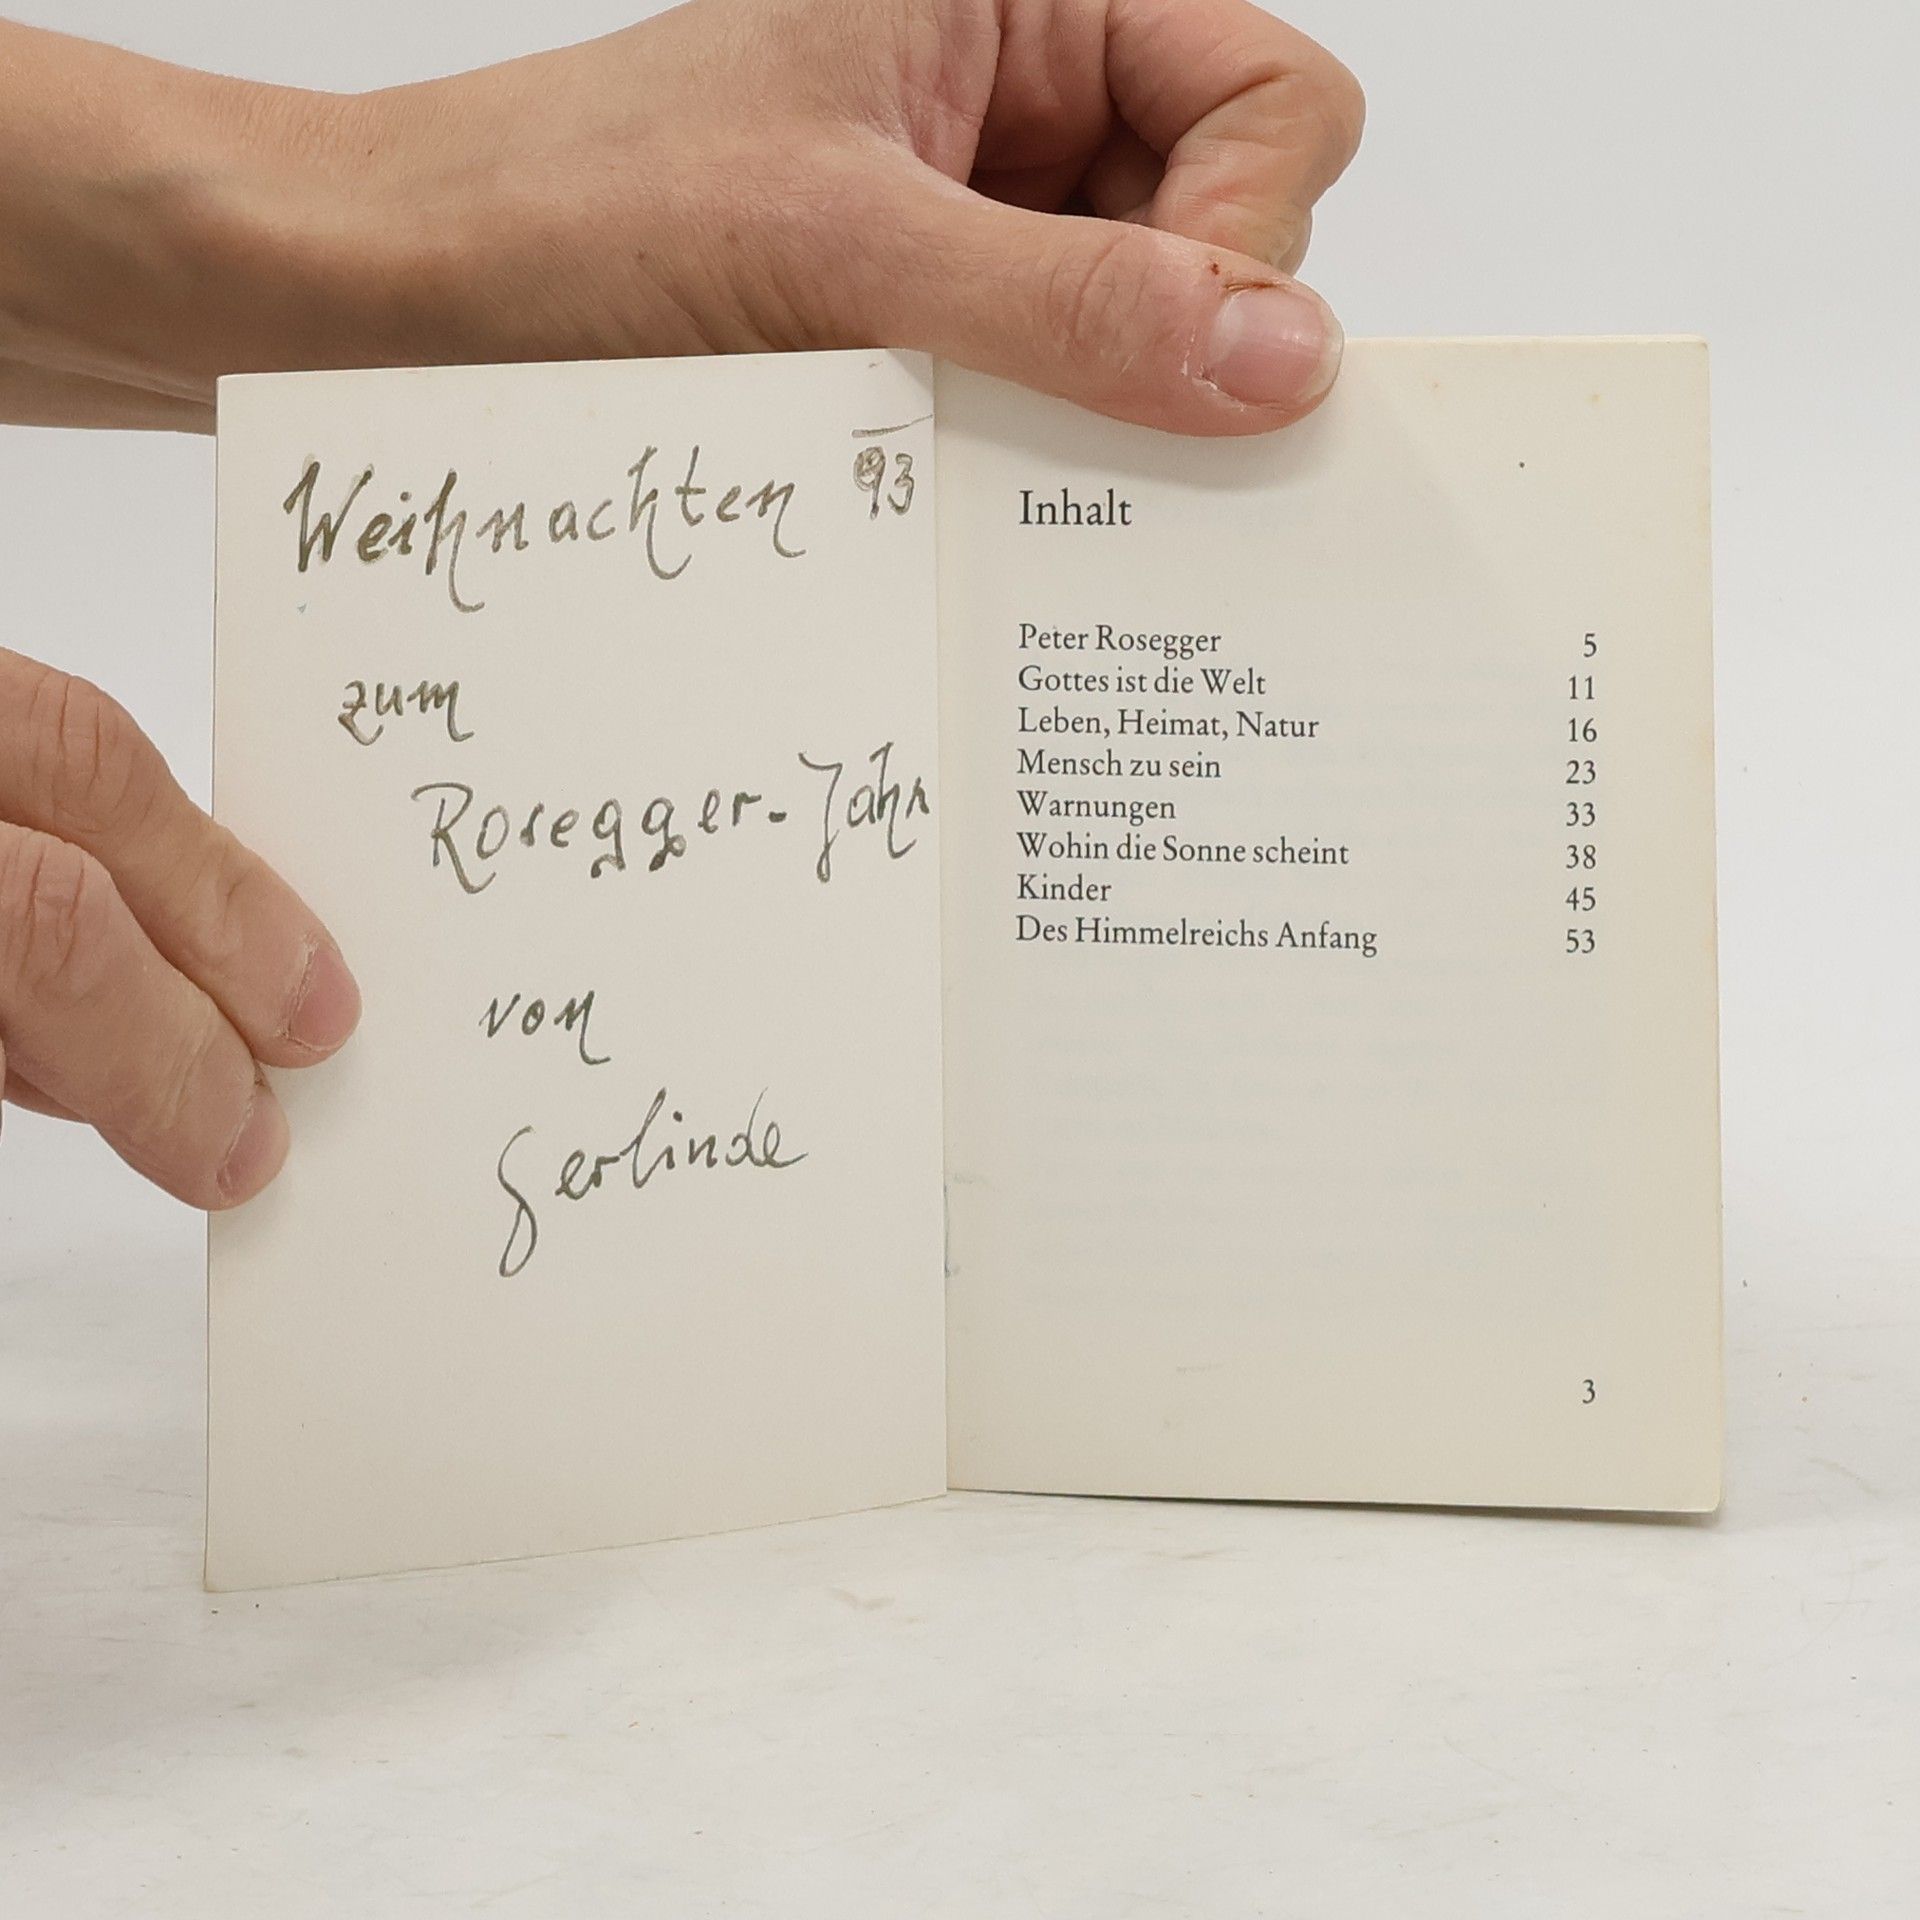 Weihnachten 93
zum
Rosegger-Jahr
von
Gerlinde
Inhalt
Peter Rosegger 5
Gottes ist die Welt 11
Leben, Heimat, Natur 16
Mensch zu sein 23
Warnungen 33
Wohin die Sonne scheint 38
Kinder 45
Des Himmelreichs Anfang 53
3